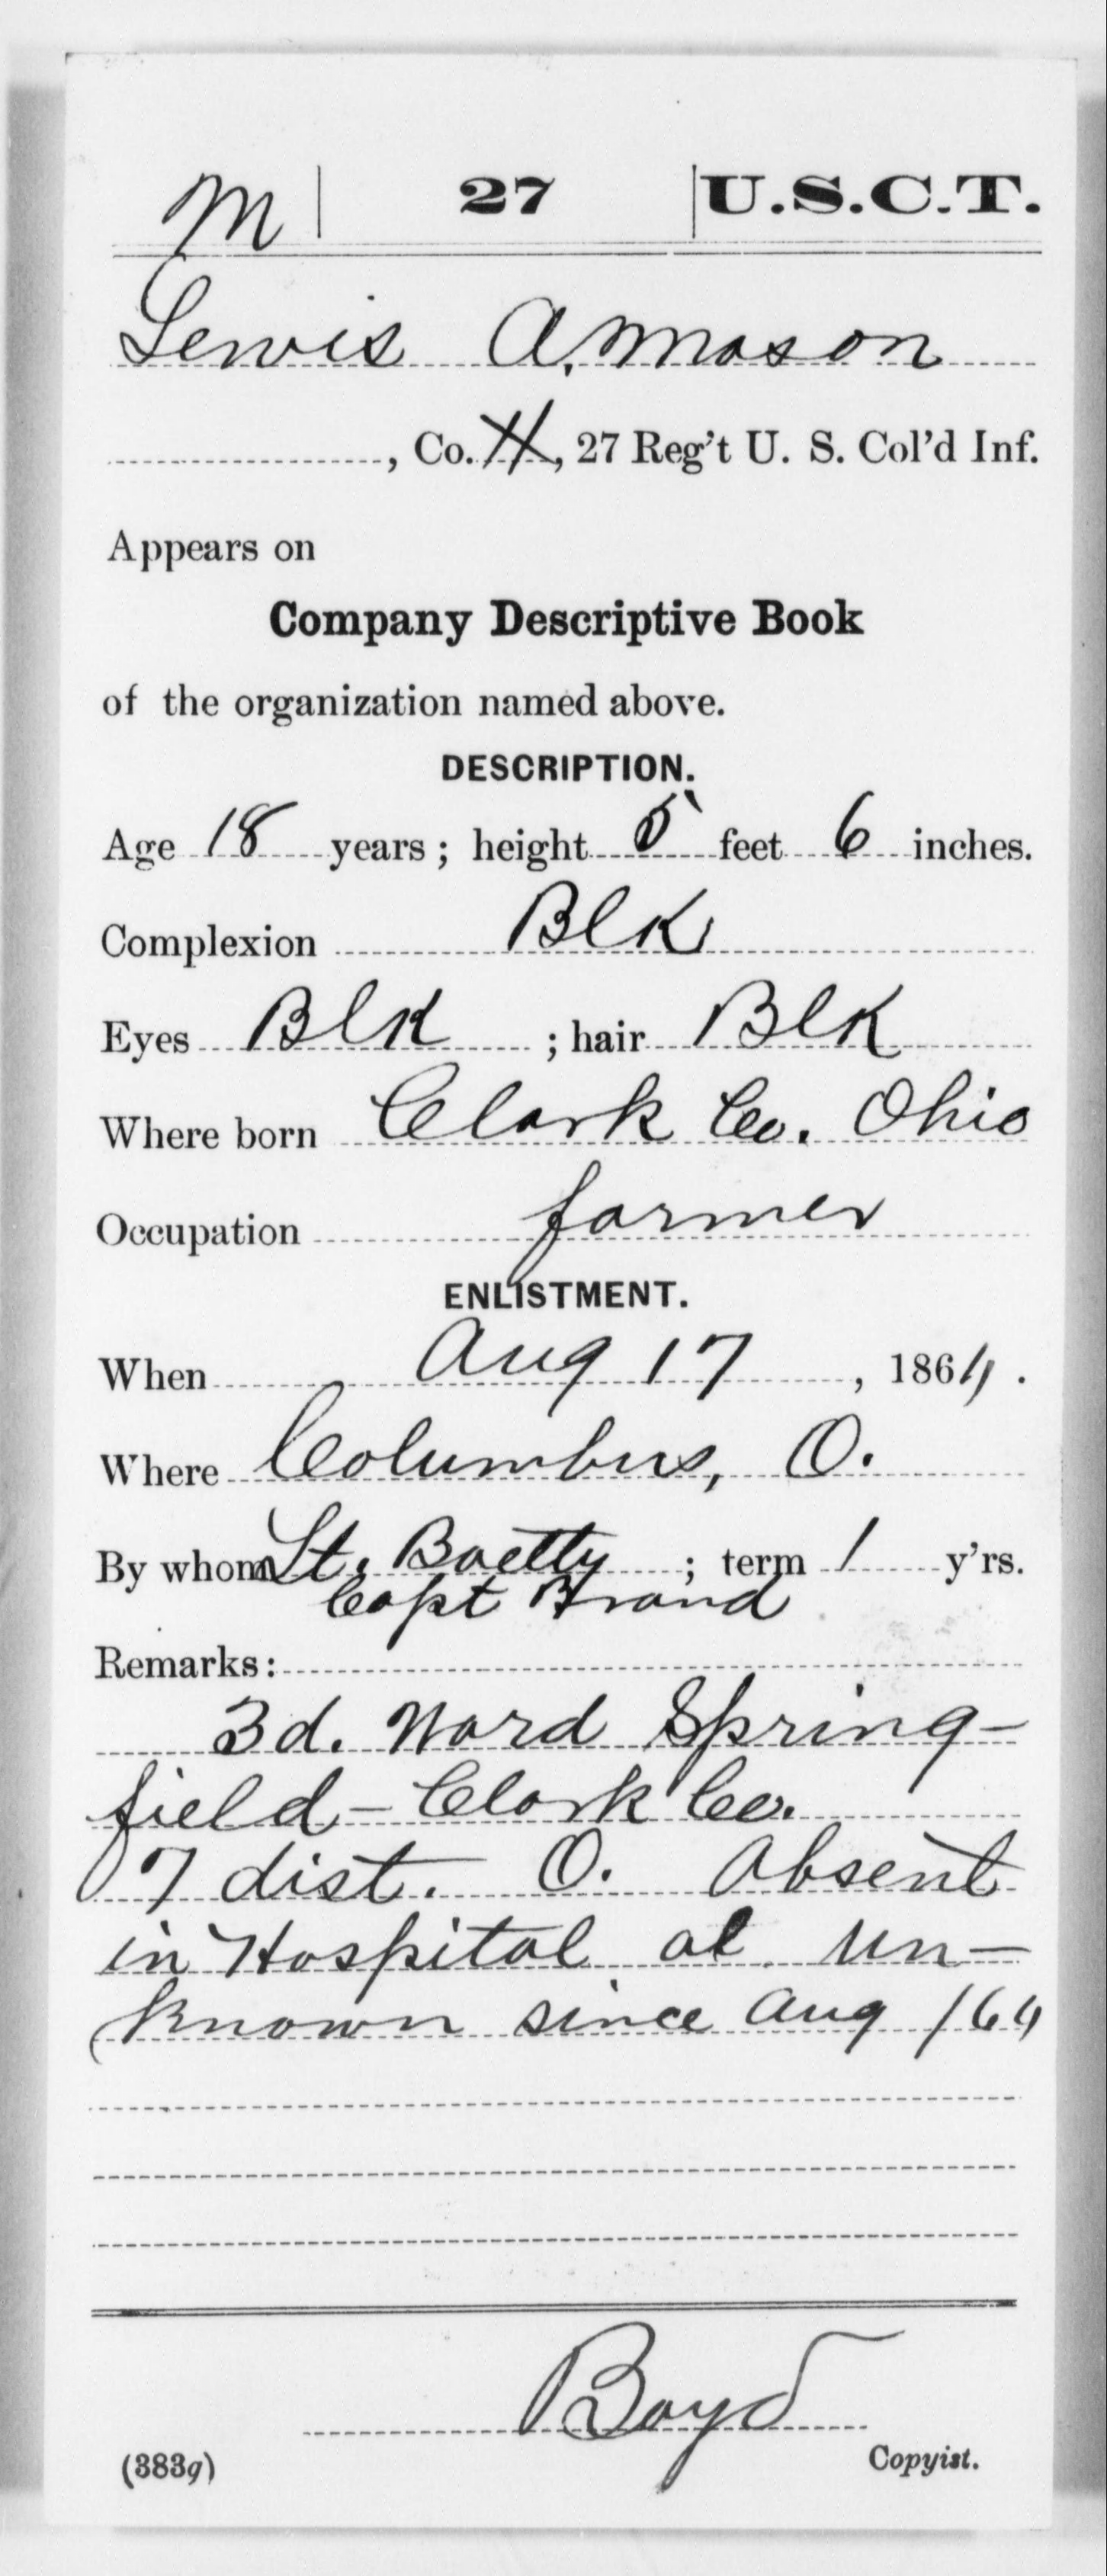 M | 27 | U.S.C.T.
Lewis A. Mason
, Co. H, 27 Reg't U. S. Col'd Inf.
Appears on
Company Descriptive Book
of the organization named above.
DESCRIPTION.
Age 18 years; height 5 feet 6 inches.
Complexion Blk
Eyes Blk ; hair Blk
Where born Clark Co. Ohio
Occupation farmer
ENLISTMENT.
When Aug 17, 1864.
Where Columbus, O.
By whom Lt. Baetty ; term 1 y'rs.
Capt Brand
Remarks:
3d. Ward Spring-
field - Clark Co.
7 dist. O. Absent
in Hospital at un-
known since Aug /64
Boyd
(383g) Copyist.